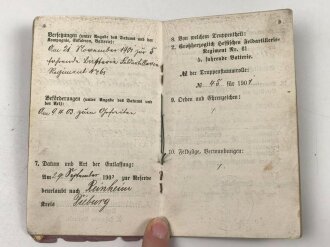 Versetzungen (unter Angabe des Datums und der
Kompagnie, Eskadron, Batterie):
Am 21. November 1901 zur 5
fahrende Batterie Feldartillerie
Regiment № 61
Beförderungen (unter Angabe des Datums und
der Art):
Am 9.11.03 zum Gefreiter
7. Datum und Art der Entlassung:
Am 29 September 190 zur Reserve
beurlaubt nach Reinheim
Kreis Dieburg
8. Von welchem Truppentheil:
2. Großherzoglich Hessischen Feldartillerie-
Regiment Nr. 61
5. fahrende Batterie.
№ der Truppenstammrolle:
№ 45 für 1901
9. Orden und Ehrenzeichen:
10. Feldzüge, Verwundungen: